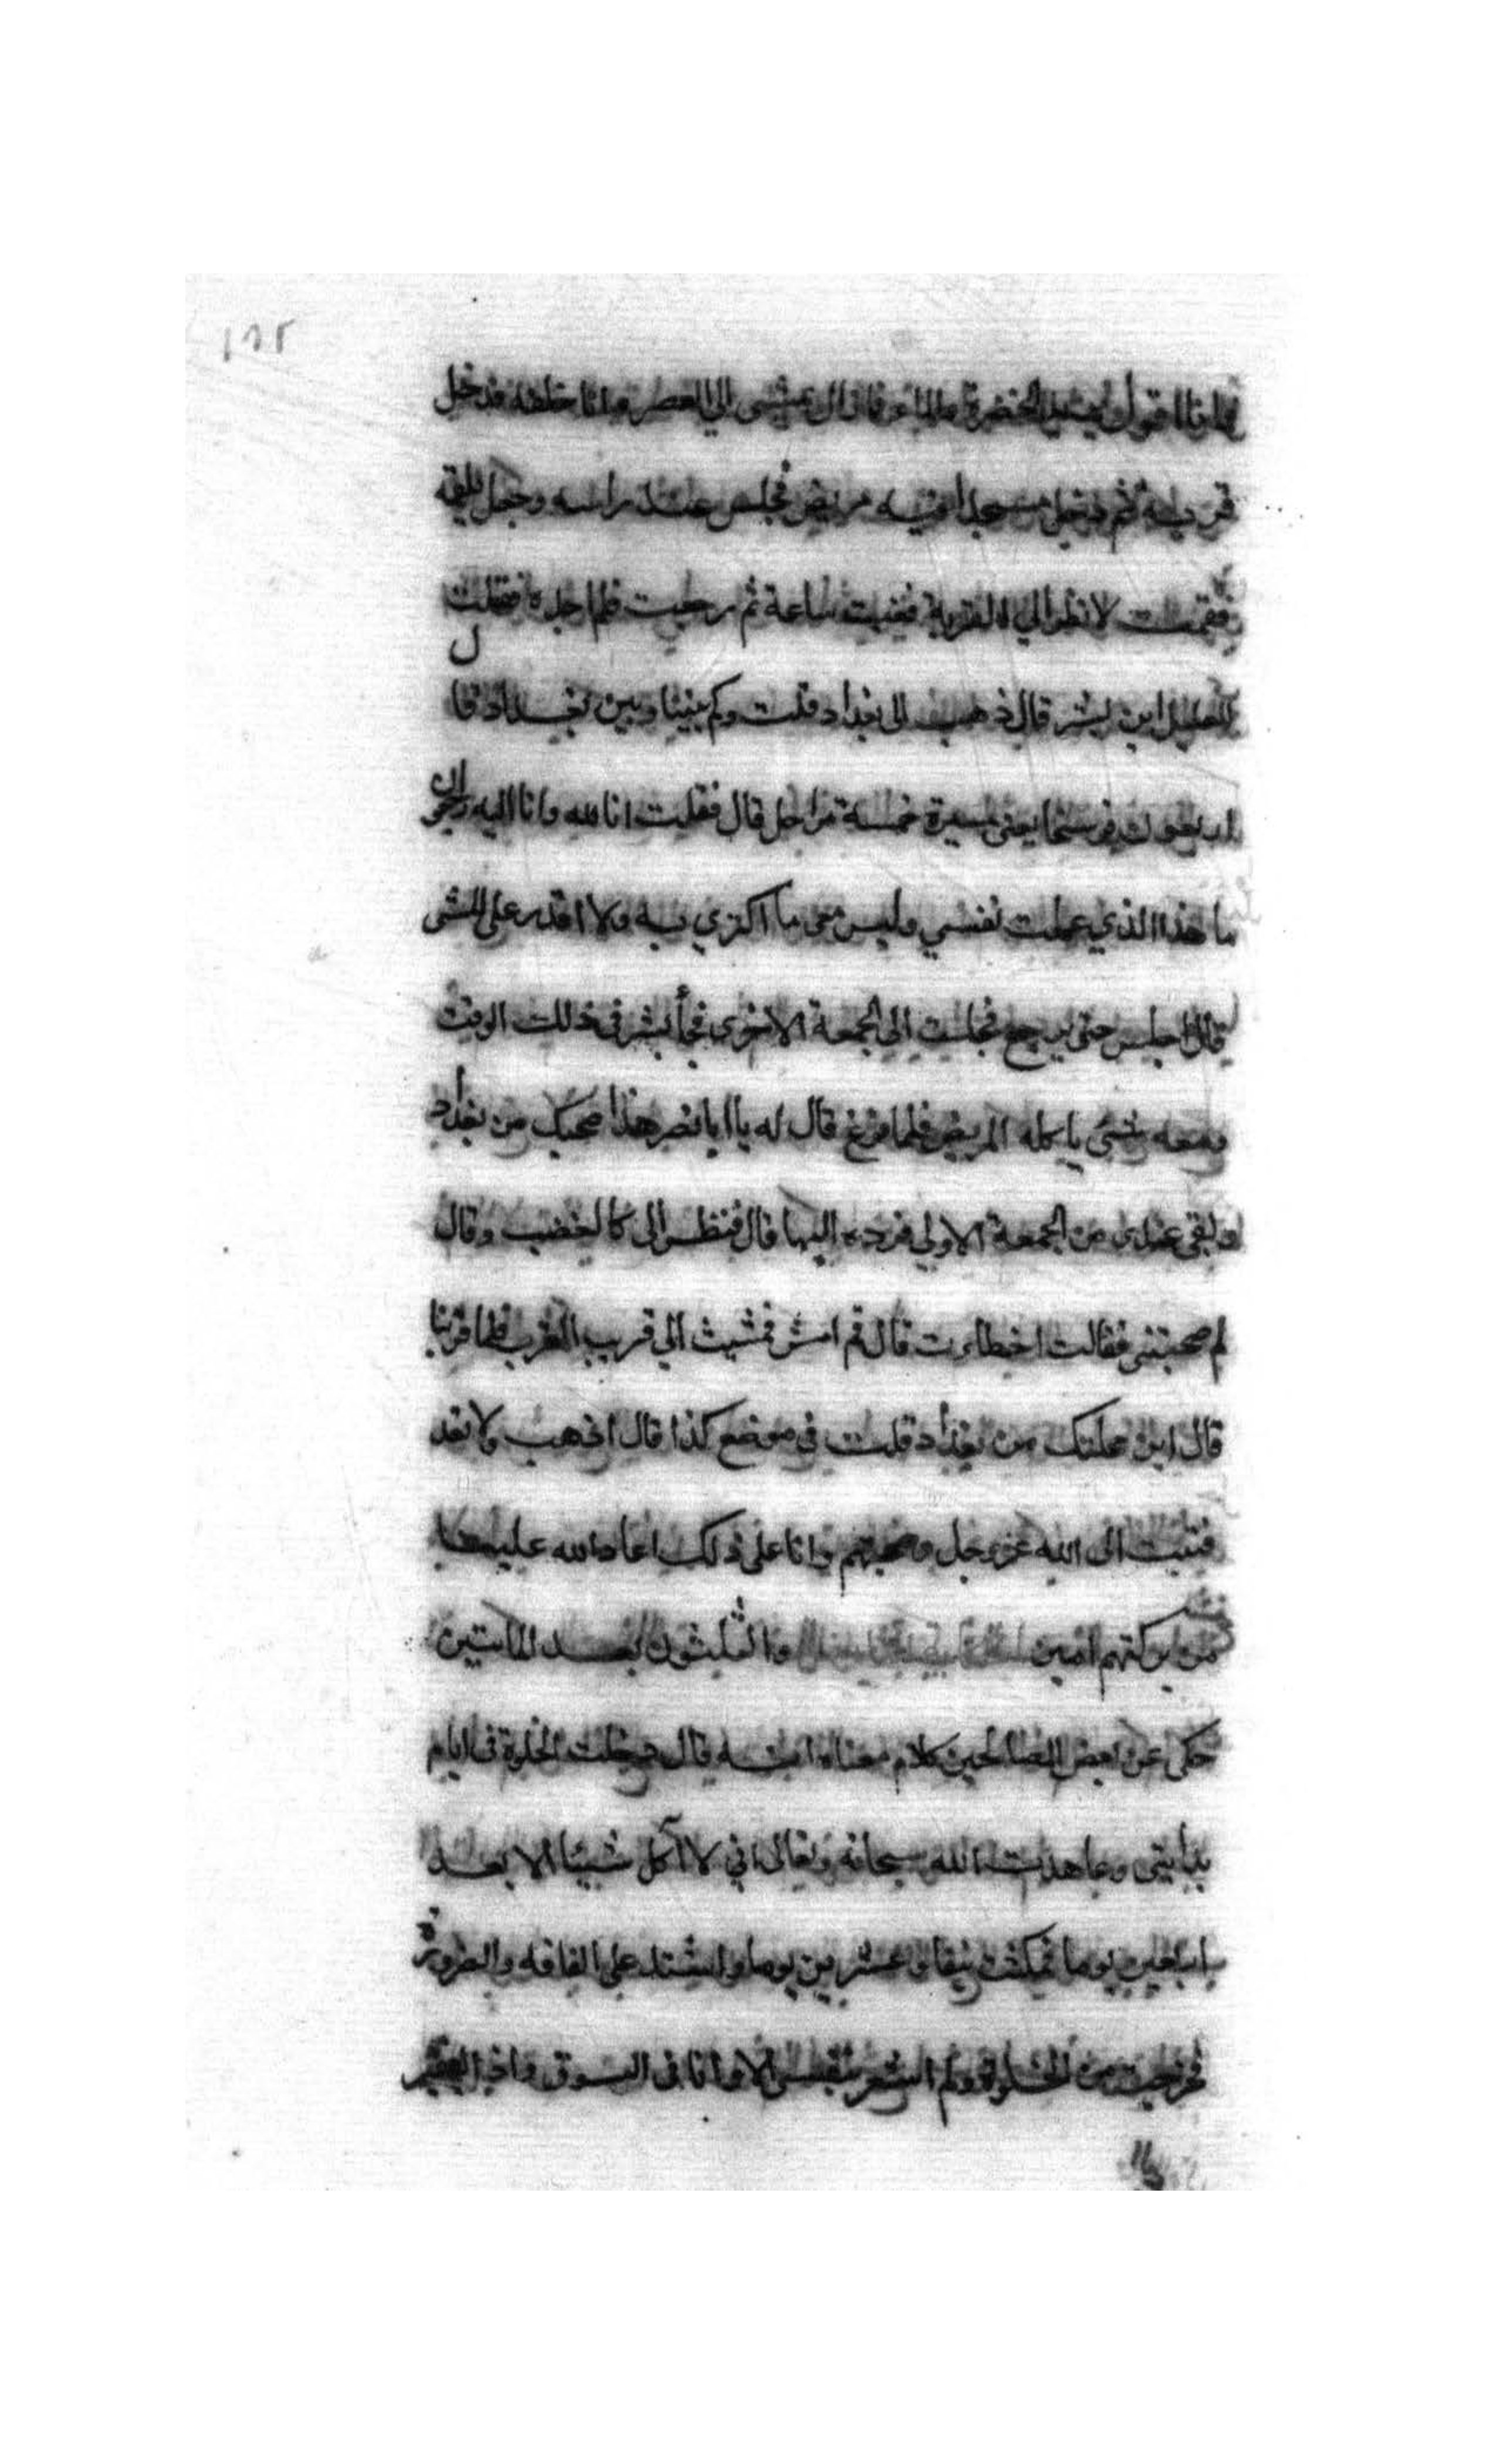 ١٣٢
وانا اقول يشتهي الخضرة والماء فما زال يمشي الى العصر وانا خلفه فدخل
قرية ثم دخل مسجدا فيه مريض فجلس عند راسه وجعل يلقمه
فقمت لانظر الى القرية فغبت ساعة ثم رجعت فلم اجده فقلت
للعليل اين بشر قال ذهب الى بغداد قلت وكم بيننا وبين بغداد قال
اربعون فرسخا يعني مسيرة خمسة مراحل قال فقلت انا لله وانا اليه راجعون
ما هذا الذي عملت نفسي وليس معي ما اكتري به ولا اقدر على المشي
قال اجلس حتى يرجع فجلست الى الجمعة الاخرى فجأ بشر في ذلك الوقت
ومعه شئ ياكله المريض فلما فرغ قال له يا ابا نصر هذا صحبك من بغداد
بقي عندى من الجمعة الاولى فرده اليها قال فنظر الى كالمغضب وقال
لم صحبتنى فقلت اخطات قال قم امش فمشيت الى قريب المغرب فلما قربنا
قال اين محلتك من بغداد قلت في موضع كذا قال اذهب ولا تعد
فتبت الى الله عز وجل وصحبتهم وانا على ذلك اعاد الله علينا
من بركتهم امين والثلثون بعد المائتين
حكى عن بعض الصالحين كلام معناه انه قال دخلت الخلوة في ايام
بدايتى وعاهدت الله سبحانه وتعالى انى لا آكل شيئا الا بعد
اربعين يوما فمكثت نيفا وعشرين يوما واشتد على الفاقه والضرورة
فخرجت من الخلوة ولم اشعر بنفسى الا وانا في السوق واذا بفقير